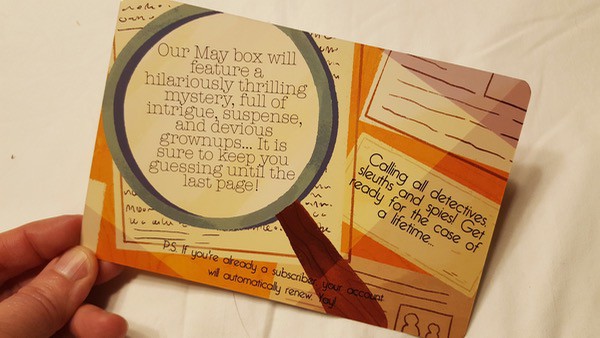 Our May box will
feature a
hilariously thrilling
mystery, full of
intrigue, suspense,
and devious
grownups... It is
sure to keep you
guessing until the
last page!
Calling all detectives,
sleuths and spies! Get
ready for the case of
a lifetime...
P.S. If you're already a subscriber, your account
will automatically renew. Yay!